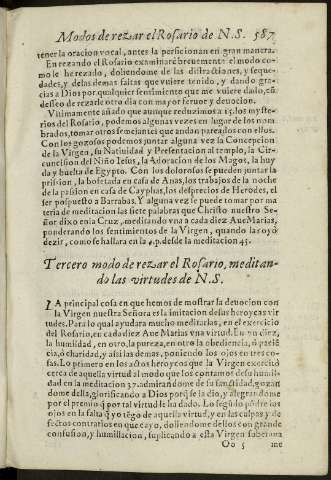 Modos de rezar el Rosario de N.S. 587
tener la oracion vocal, antes la perficionan en gran manera.
En rezando el Rosario examinarè breuemente el modo co-
mo le he rezado, doliendome de las distracciones, y seque-
dades, y delas demas faltas que vuiere tenido, y dando gra-
cias a Dios por qualquier sentimiento que me vuiere dado, cõ
desseo de rezarle otro dia con mayor feruor y deuocion.
Vltimamente añado que aunque reduzimos a 15. los myste-
rios del Rosario, podemos algunas vezes en lugar de los nom
brados, tomar otros semejantes que andan pareados con ellos.
Con los gozosos podemos juntar alguna vez la Concepcion
de la Virgen, su Natiuidad y Presentacion al templo, la Cir-
cuncision del Niño Iesus, la Adoracion de los Magos, la huy
da y buelta de Egypto. Con los dolorosos se pueden juntar la
prision, la bofetada en casa de Anas, los trabajos de la noche
de la passion en casa de Cayphas, los desprecios de Herodes, el
ser pospuesto a Barrabas. Y alguna vez se puede tomar por ma
teria de meditacion las siete palabras que Christo nuestro Se-
ñor dixo en la Cruz, meditando vna a cada diez Aue Marias,
ponderando los sentimientos de la Virgen, quando las oyó
dezir, como se hallara en la 4.p. desde la meditacion 45.
Tercero modo de rezar el Rosario, meditan-
do las virtudes de N.S.
LA principal cosa en que hemos de mostrar la deuocion con
la Virgen nuestra Señora es la imitacion de sus heroycas vir
tudes. Para lo qual ayudara mucho meditarlas, en el exercicio
del Rosario, en cada diez Aue Marias vna virtud. En vn diez,
la humildad, en otro, la pureza, en otro la obediencia, ò paciẽ
cia, ò charidad, y assi las demas, poniendo los ojos en tres co-
sas. Lo primero en los actos heroycos que la Virgen exercitò
cerca de aquella virtud al modo que los contamos de su humil-
dad en la meditacion 37. admirandome de su sanctidad, gozan
dome della, glorificando a Dios porq̃ se la dio, y alegrandome
por el premio q̃ por tal virtud le ha dado. Lo segũdo põdre los
ojos en la falta q̃ yo tẽgo de aquella virtud, y en las culpas y de
fectos contrarios en que cayo, doliendome dellos con grande
confusion, y humillacion, suplicando a esta Virgen soberana
Oo 5 me